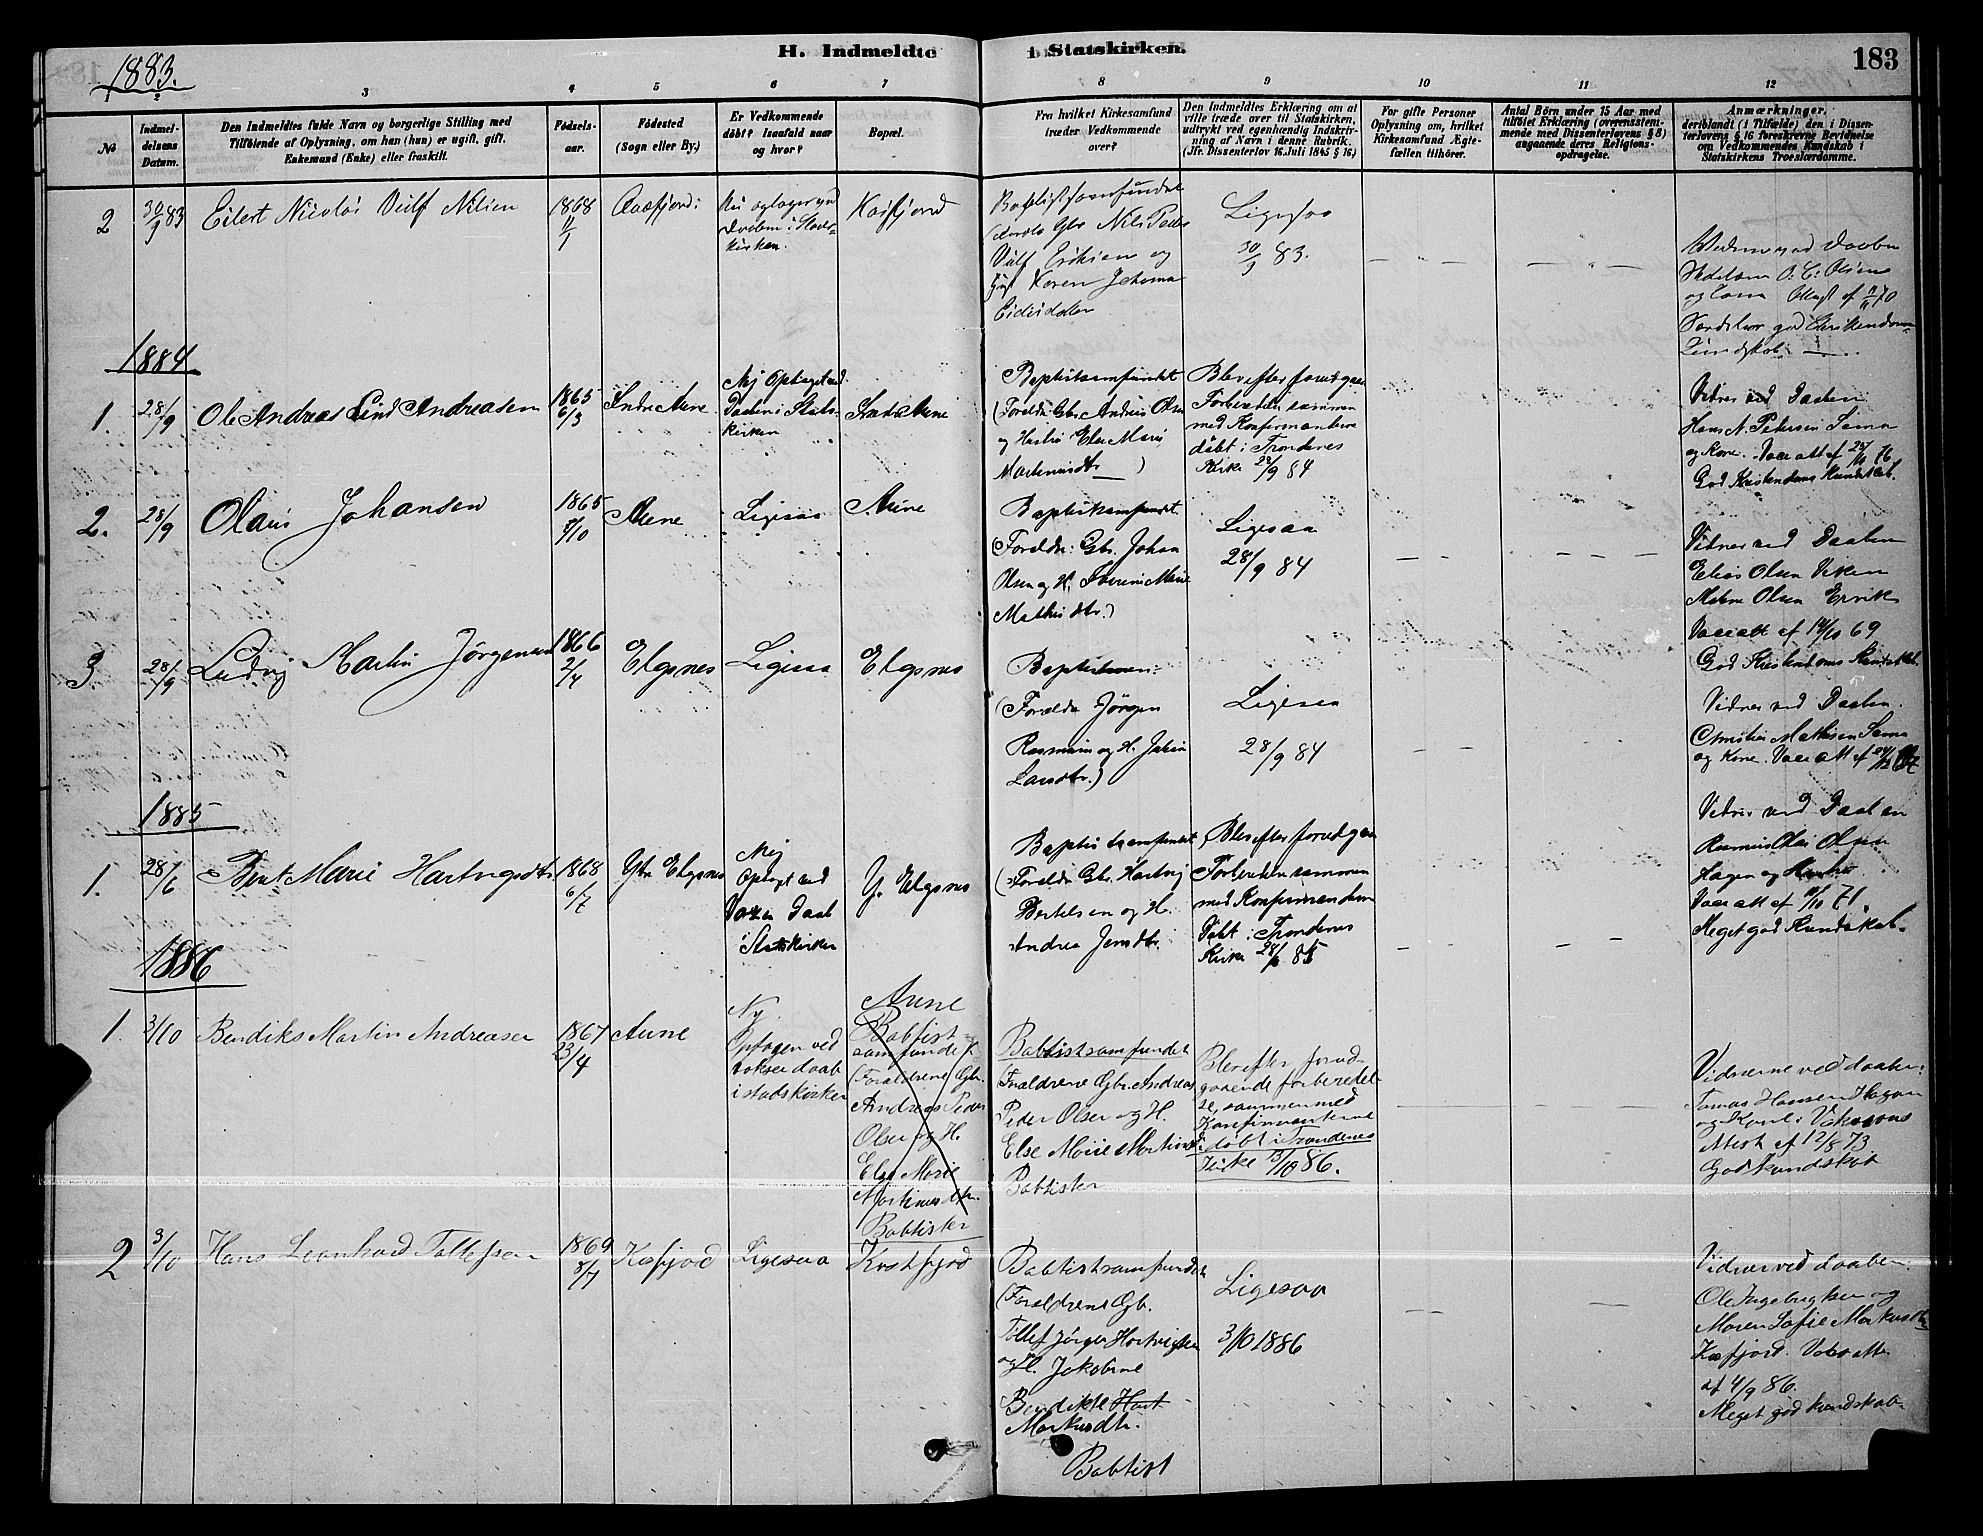 H. Indmeldte i Statskirken.
183
1883.
1 2 3 4 5 6 7 8 9 10 11 12
No
Indmel-
delsens
Datum.
Den Indmeldtes fulde Navn og borgerlige Stilling med
Tilföiende af Oplysning, om han (hun) er ugift, gift,
Enkemand (Enke) eller fraskilt.
Födsels-
aar.
Födested
(Sogn eller By.)
Er Vedkommende
döbt? Isaafald naar
og hvor?
Bopæl.
Fra hvilket Kirkesamfund
træder Vedkommende
over?
Den Indmeldtes Erklæring om at
ville træde over til Statskirken,
udtrykt ved egenhændig Indskriv-
ning af Navn i denne Rubrik.
(Jfr. Dissenterlov 16. Juli 1845 § 16.)
For gifte Personer
Oplysning om, hvilket
Kirkesamfund Ægte-
fællen tilhörer.
Antal Börn under 15 Aar med
tilföiet Erklæring (overensstem-
mende med Dissenterlovens § 8)
angaaende deres Religions-
opdragelse.
Anmærkninger,
deriblandt (i Tilfælde) den i Dissen-
terlovens § 16 foreskrevne Bevidnelse
om Vedkommendes Kundskab i
Statskirkens Troeslærdomme.
2
30/9 83
Eilert Nicolai Vulf Nilsen
1868
Kasfjord
Baptistsamfundet
Nils Peder
Vulf Eriksen og
Karen Johanna
Ligesaa
30/9 83.
1884
1.
28/9
Ole Andreas Lind Andreasen
1865
6/3
Indre Aune
Nej Optaget ved
Daaben i Stats-
kirken
Indre Aune
Baptistsamfundet
(Forældre Gbr. Andreas Olsen
og Hustru Else Marie
Martinusdtr.)
Blev efter foregaaen
Forberedelse sammen
med Konfirmanterne
döbt i Trondenes
Kirke 28/9 84
Vidner ved Daaben
Hans N. Petersen Sama
og Kone. Vacc att af
God Kristendoms Kundskab.
2.
28/9
Olaus Johansen
1865
8/10
Aune
Ligesaa
Aune
Baptistsamfundet.
(Forældre: Gbr. Johan
Olsen og H. Severine Marie
Mathisdtr.)
Ligesaa
28/9 84
Vidner ved Daaben
Elias Olsen Viken
Malene Olsen Ervik
Vacc att af 14/10 69
God Kristendoms Kundskab.
3
28/9
Ludvig Martin Jörgensen
1866
2/4
Elgsnes
Ligesaa
Elgsnes
(Forældre Jörgen
Rasmussen og H. Johan
Larsdtr.)
Ligesaa
28/9 84
Vidner ved Daaben.
Christen Mathisen Sama
og Kone. Vacc att af
1885
1.
28/6
Berit Marie Hartvigsdtr.
1868
6/7
Ytre Elgsnes
Nej
Optagt ved
Voxen Daab
i Statskirken
Y. Elgsnes
Baptistsamfundet
(Forældre Gbr. Hartvig
Bertelsen og H.
Andrea Jensdtr.
Blev efter foregaaen
Forberedelse sammen
med Konfirmanderne
Döbt i Trondenes
Kirke 28/6 85
Vidner ved Daaben
Rasmus Olai Olsen
Hagen og Hustru.
Vacc att af 10/10 71.
Meget god Kundskab.
1886
1.
3/10
Bendiks Martin Andreasen
1867
23/4
Aune
Nej.
Optagen ved
voksen daab
i statskirken
Aune
Babtist-
samfundet
(Forældrene Gbr.
Andreas Peder
Olsen og H.
Else Marie
Martinusdtr.
Babtister
Babtistsamfundet
(Forældrene Gbr. Andreas
Peder Olsen og H.
Else Marie Martinusd.
Babtister
Blev efter forud-
gaaende forberedel-
se, sammen med
Konfirmanterne
döbt i Trondenes
Kirke 3/10 86.
Vidnerne ved daaben:
Tomas Hansen Hagen
og Kone. Vaksinas
Attest af 12/8 73
God kundskab
2
3/10
Hans Leonhard Tollefsen
1869
8/7
Kasfjord
Ligesaa
Kasfjord
Babtistsamfundet
(Forældrene Gbr.
Tollef Jörgen Hartvigsen
og H. Jakobine
Bendikte Hart
Markusdtr.
Babtist
Ligesaa
3/10 1886
Vidner ved daaben.
Ole Ingebrigtsen og
Maren Sofie Markusdtr.
Kasfjord. Vaks. att.
af 4/9 86.
Meget god kundskab